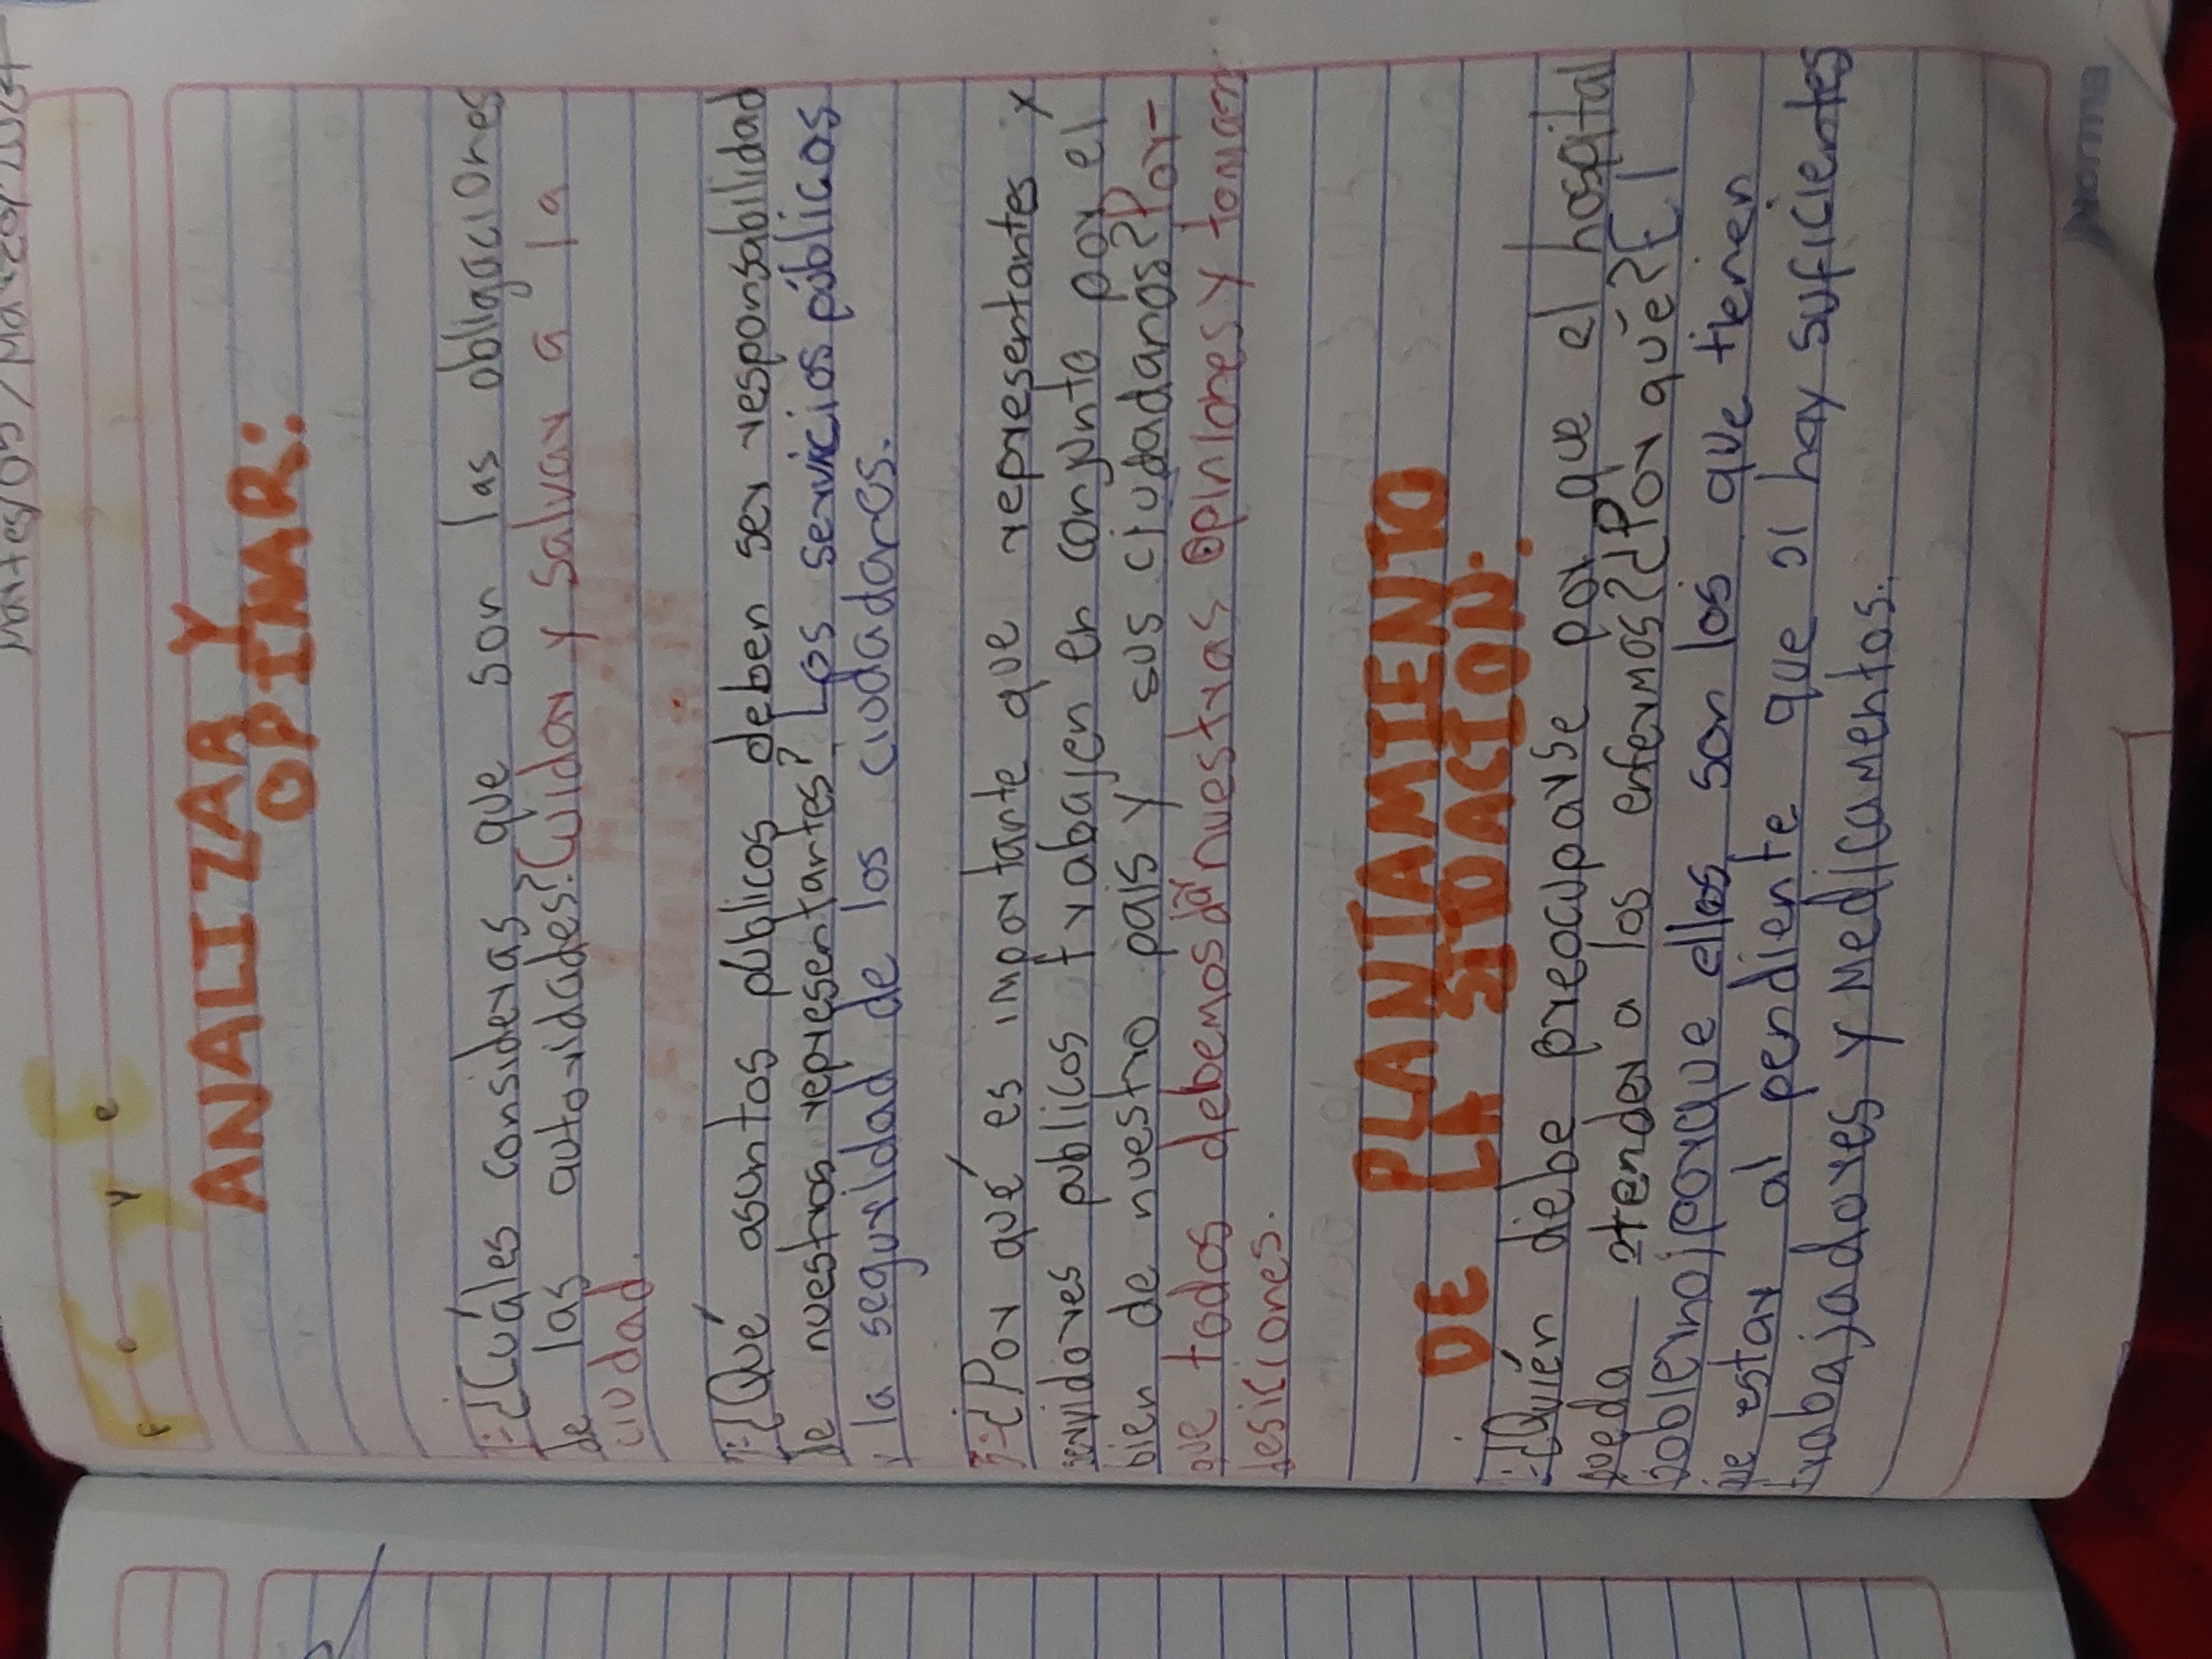 Martes/05/Mar
F C y E
F C y e
ANALIZAR Y
OPINAR:
1:-¿Cuáles consideras que son las obligaciones
de las autoridades? Cuidar y Salvar a la
ciudad.
2:-¿Qué asuntos públicos deben ser responsabilidad
de nuestros representantes? Los servicios públicos
y la seguridad de los ciudadares.
3:-¿Por qué es importante que representantes y
servidores publicos trabajen en conjunto por el
bien de nuestro pais y sus ciudadanos? Por-
que todos debemos dar nuestras opiniones y tomar
desiciones.
PLANTAMIENTO
DE LA SITUACION:
1:-¿Quién debe preocuparse por que el hospital
pueda atender a los enfermos? ¿Por qué? El
gobierno, porque ellos son los que tienen
que estar al pendiente que si hay suficientes
trabajadores y medicamentos.
Norma